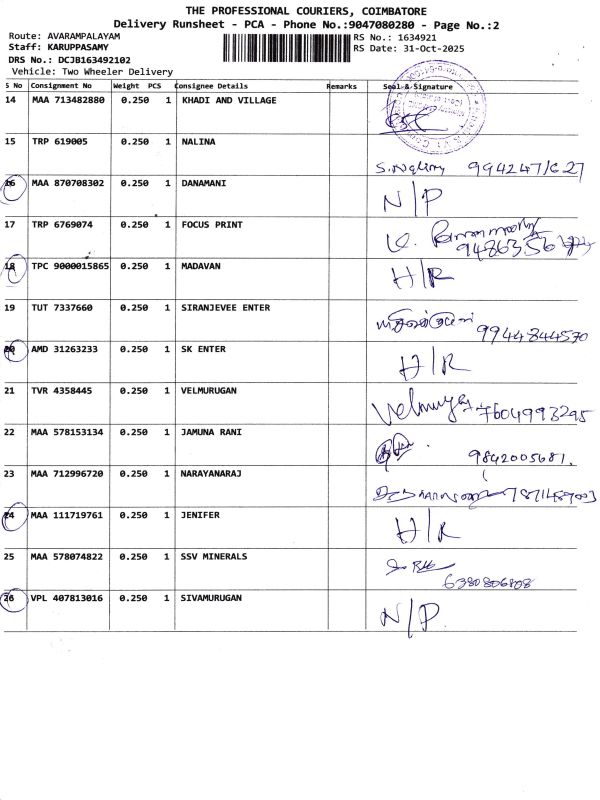 THE PROFESSIONAL COURIERS, COIMBATORE
Delivery Runsheet - PCA - Phone No.:9047080280 - Page No.:2
Route: AVARAMPALAYAM RS No.: 1634921
Staff: KARUPPASAMY RS Date: 31-Oct-2025
DRS No.: DCJB163492102
Vehicle: Two Wheeler Delivery
S No Consignment No Weight PCS Consignee Details Remarks Seal & Signature
14 MAA 713482880 0.250 1 KHADI AND VILLAGE
15 TRP 619005 0.250 1 NALINA
S. Nalina
16 MAA 870708302 0.250 1 DANAMANI
N/P
17 TRP 6769074 0.250 1 FOCUS PRINT
18 TPC 9000015865 0.250 1 MADAVAN
H/R
19 TUT 7337660 0.250 1 SIRANJEVEE ENTER
9944844570
20 AMD 31263233 0.250 1 SK ENTER
H/R
21 TVR 4358445 0.250 1 VELMURUGAN
Velmurugan 7604993295
22 MAA 578153134 0.250 1 JAMUNA RANI
9842005681.
23 MAA 712996720 0.250 1 NARAYANARAJ
24 MAA 111719761 0.250 1 JENIFER
H/R
25 MAA 578074822 0.250 1 SSV MINERALS
6380806808
26 VPL 407813016 0.250 1 SIVAMURUGAN
N/P